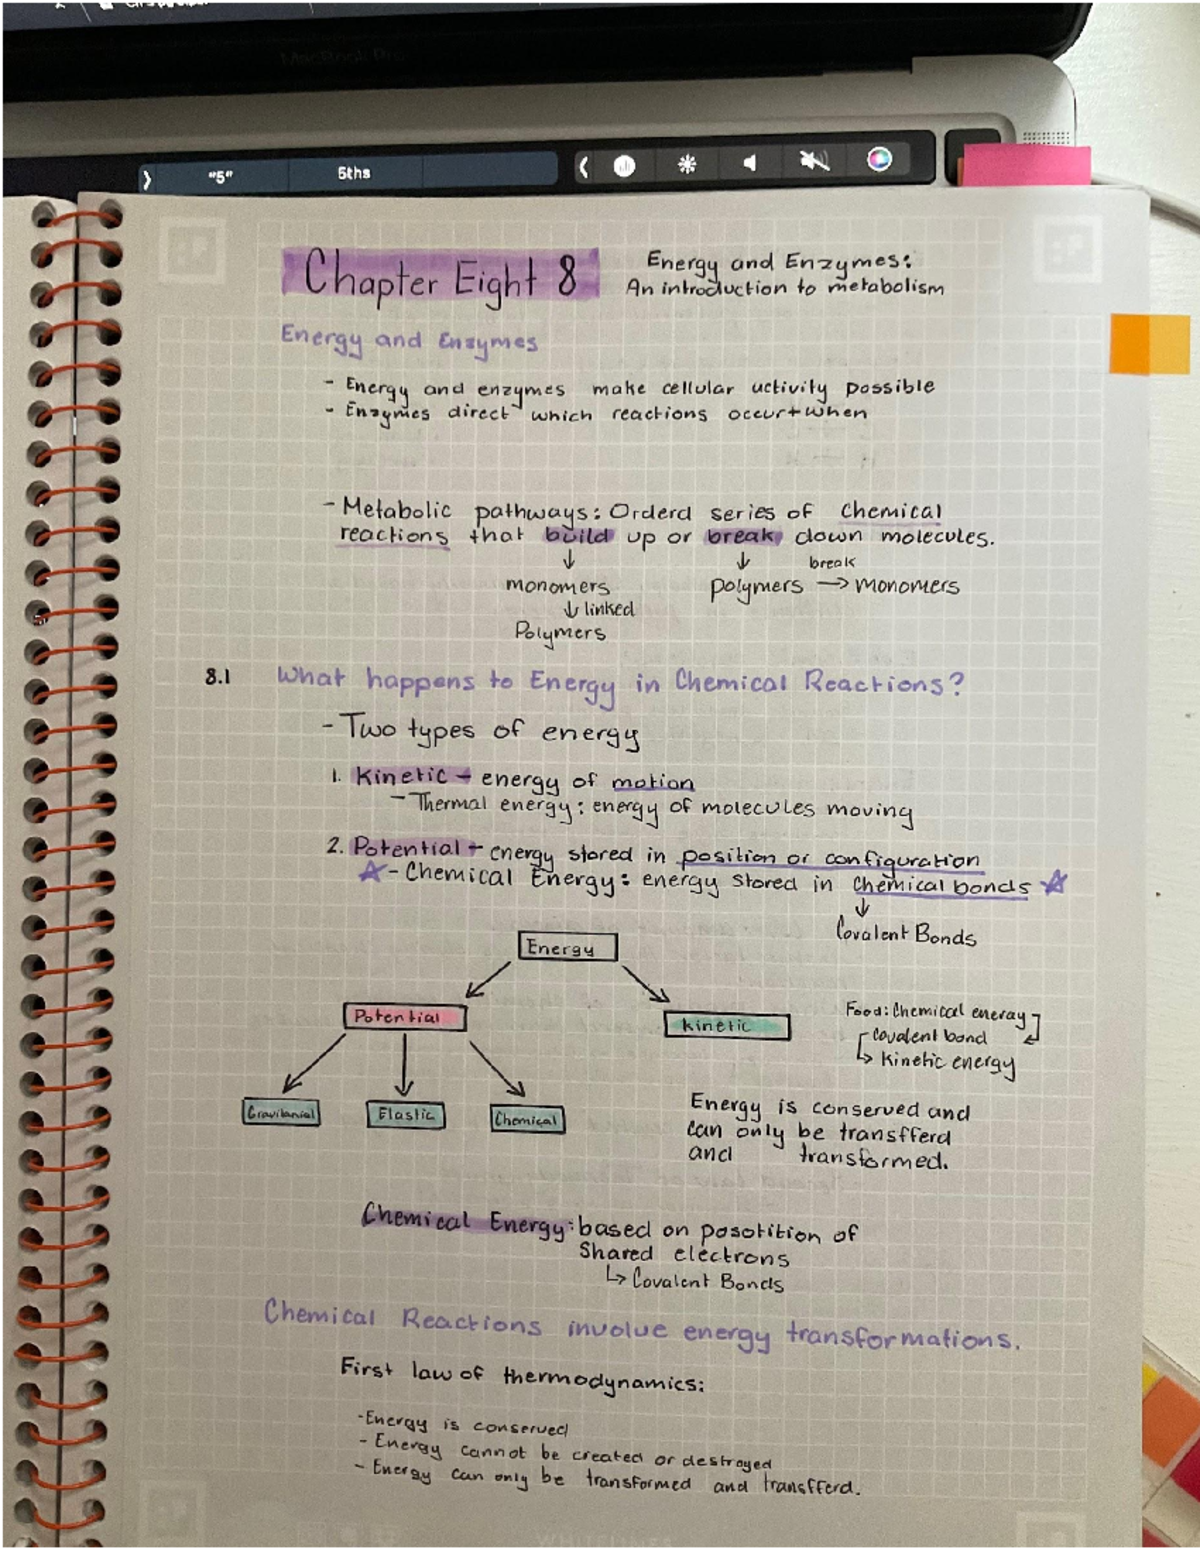 MacBook Pro
"5"
5ths
Chapter Eight 8
Energy and Enzymes:
An introduction to metabolism
Energy and Enzymes
- Energy and enzymes make cellular activity possible
- Enzymes direct which reactions occur + when
- Metabolic pathways: Orderd series of Chemical
reactions that build up or break down molecules.
↓ ↓ break
monomers polymers → monomers
↓ linked
Polymers
8.1 What happens to Energy in Chemical Reactions?
- Two types of energy
1. Kinetic - energy of motion
- Thermal energy: energy of molecules moving
2. Potential - energy stored in position or configuration
☆ - Chemical Energy: energy stored in chemical bonds ☆
↓
Covalent Bonds
Energy
Potential
Kinetic
Food: Chemical energy
covalent bond
↳ Kinetic energy
Elastic
Chemical
Energy is conserved and
can only be transfferd
and transformed.
Chemical Energy: based on posotition of
Shared electrons
↳ Covalent Bonds
Chemical Reactions involve energy transformations.
First law of thermodynamics:
- Energy is conserved
- Energy cannot be created or destroyed
- Energy can only be transformed and transfferd.